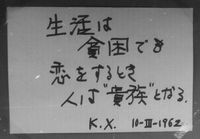 生活は
貧困でも
恋をするとき
人は"貴族"となる.
K.X. 10-III-1962